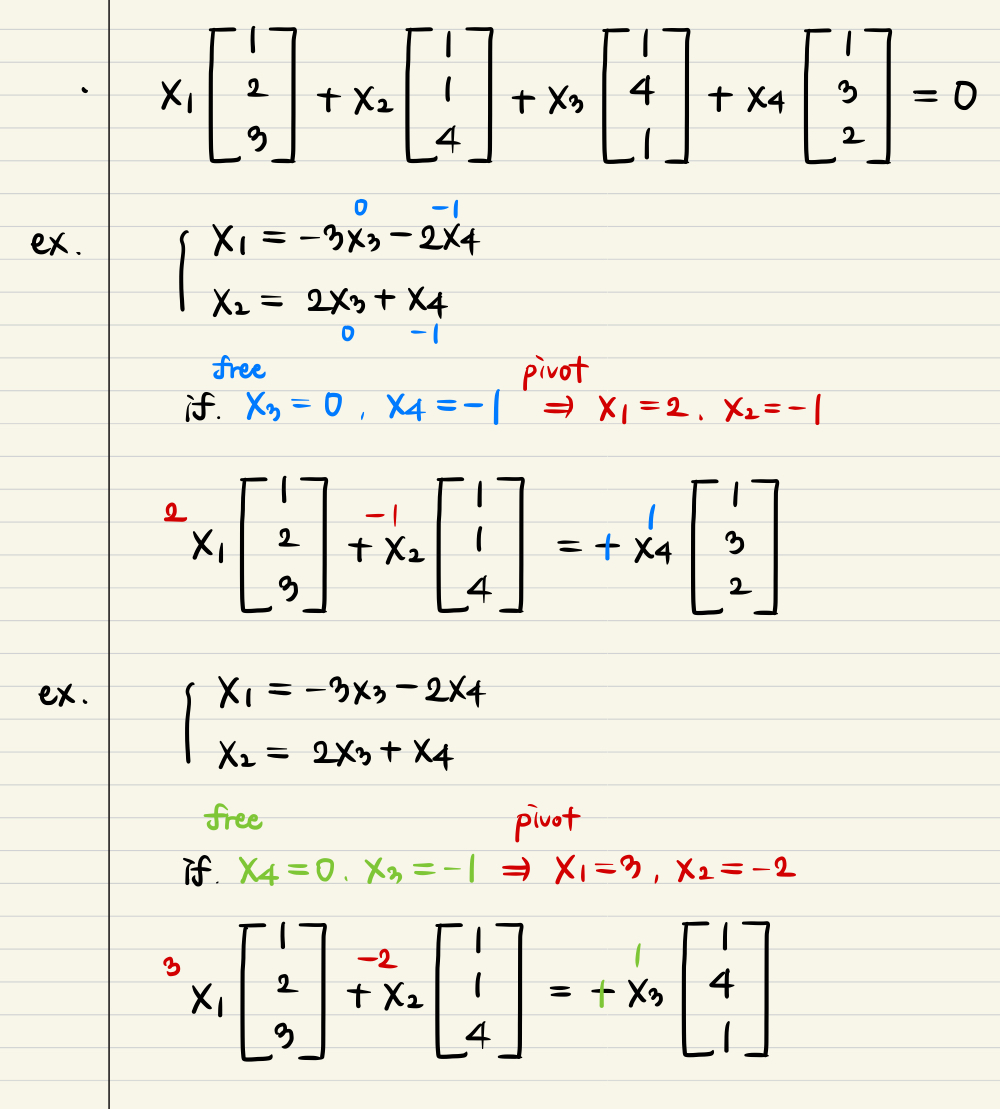 . X₁ [1 2 3] + X₂ [1 1 4] + X₃ [1 4 1] + X₄ [1 3 2] = 0
0 -1
ex. { X₁ = -3X₃ - 2X₄
X₂ = 2X₃ + X₄
0 -1
free pivot
if. X₃ = 0 . X₄ = -1 ⇒ X₁ = 2 . X₂ = -1
2 -1 1
X₁ [1 2 3] + X₂ [1 1 4] = + X₄ [1 3 2]
ex. { X₁ = -3X₃ - 2X₄
X₂ = 2X₃ + X₄
free pivot
if. X₄ = 0 . X₃ = -1 ⇒ X₁ = 3 , X₂ = -2
3 -2 1
X₁ [1 2 3] + X₂ [1 1 4] = + X₃ [1 4 1]